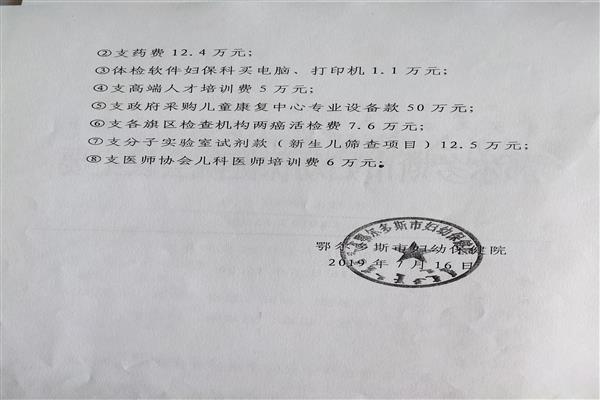 ②支药费 12.4 万元;
③体检软件妇保科买电脑、打印机 1.1 万元;
④支高端人才培训费 5 万元;
⑤支政府采购儿童康复中心专业设备款 50 万元;
⑥支各旗区检查机构两癌活检费 7.6 万元;
⑦支分子实验室试剂款（新生儿筛查项目）12.5 万元;
⑧支医师协会儿科医师培训费 6 万元。
鄂尔多斯市妇幼保健院
鄂尔多斯市妇幼保健院
2019 年 7 月 16 日